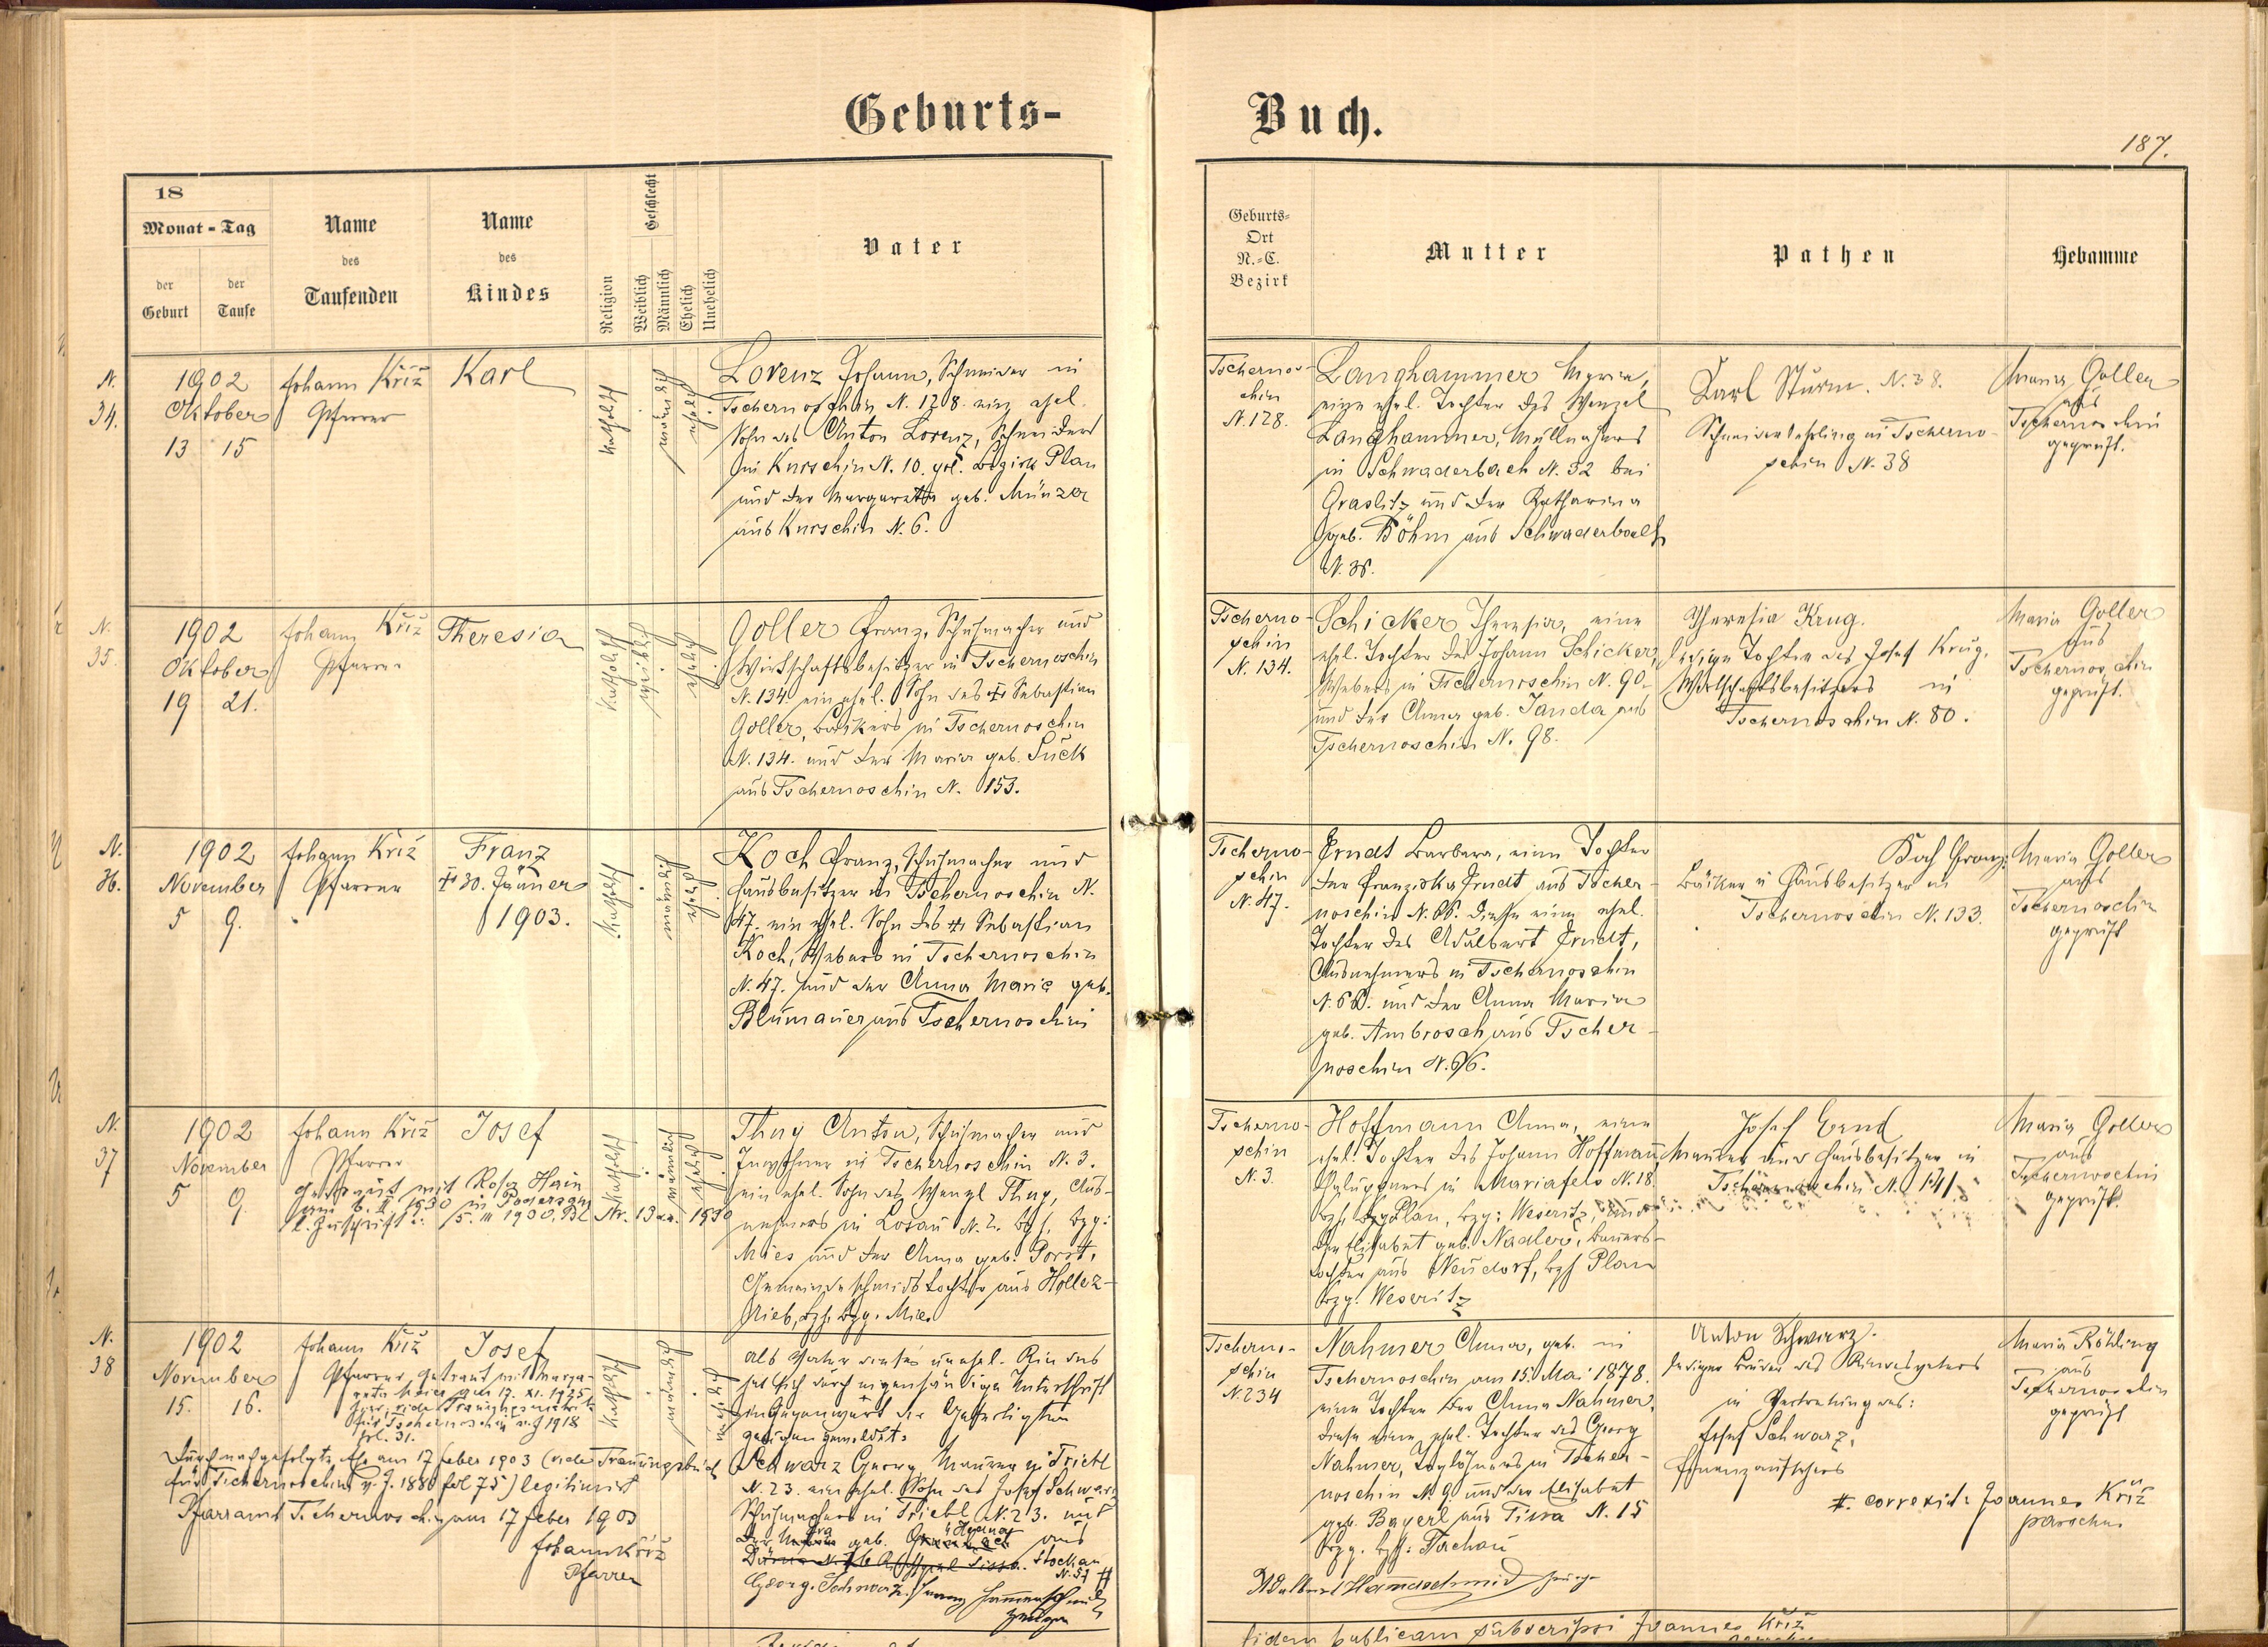 Geburts-
Buch.
187.
18
Monat - Tag
der Geburt
der Taufe
Name des Taufenden
Name des Kindes
Religion
Geschlecht
Weiblich
Männlich
Ehelich
Unehelich
Vater
Geburts-
Ort
N.-C.
Bezirk
Mutter
Pathen
Hebamme
N. 34.
1902
Oktober
13 15
Johann Křiž
Pfarrer
Karl
katholisch
männlich
ehelich
Lorenz Johann, Schneider in
Tschernoschin N. 128. ein ehel.
Sohn des Anton Lorenz, Schneiders
in Kurschin N. 10. pol. Bezirk Plan
und der Margaretha geb. Münzer
aus Kurschin N. 6.
Tscherno-
schin
N. 128.
Langhammer Maria,
eine ehel. Tochter des Wenzel
Langhammer,
in Schwaderbach N. 32 bei
Graslitz und der Katharina
geb. Böhm aus Schwaderbach
N. 36.
Karl Sturm. N. 38.
Schneiderlehrling in Tscherno-
schin N. 38
Maria Goller
aus
Tschernoschin
geprüft.
N. 35.
1902
Oktober
19 21.
Johann Křiž
Pfarrer
Theresia
katholisch
weiblich
ehelich
Goller Franz, Schuhmacher und
Wirtschaftsbesitzer in Tschernoschin
N. 134. ein ehel. Sohn des † Sebastian
Goller, Bäckers in Tschernoschin
N. 134. und der Maria geb. Suck
aus Tschernoschin N. 153.
Tscherno-
schin
N. 134.
Schicker Theresia, eine
ehel. Tochter des Johann Schicker,
Webers in Tschernoschin N. 90.
und der Anna geb. Janda aus
Tschernoschin N. 98.
Theresia Krug.
ledige Tochter des Josef Krug.
Wirtschaftsbesitzers in
Tschernoschin N. 80.
Maria Goller
aus
Tschernoschin
geprüft.
N.
1902
November
5 9.
Johann Křiž
Pfarrer
Franz
† 30. Jänner
1903.
katholisch
männlich
ehelich
Koch Franz, Schuhmacher und
Hausbesitzer in Tschernoschin N.
47. ein ehel. Sohn des † Sebastian
Koch, Webers in Tschernoschin
N. 47. und der Anna Maria geb.
Blumauer aus Tschernoschin
Tscherno-
schin
N. 47.
Arndt Barbara, eine Tochter
der Franziska Arndt aus Tscher-
noschin N. 66. diese eine ehel.
Tochter des Adalbert Arndt,
Ausnehmers in Tschernoschin
N. 66. und der Anna Maria
geb. Ambrosch aus Tscher-
noschin N. 66.
Koch Franz.
Bäcker u Hausbesitzer in
Tschernoschin N. 133.
Maria Goller
aus
Tschernoschin
geprüft
N. 37
1902
November
5 9.
Johann Křiž
Pfarrer
Josef
katholisch
männlich
ehelich
Getraut mit Rosa Hain
am 6. II. 1930 in Podersam
l. Zuschrift v. 5. III 1930, Bl Nr. 13 1930
Thuy Anton, Schuhmacher und
Inwohner in Tschernoschin N. 3.
ein ehel. Sohn des Wenzl Thuy, Aus-
nehmers in Losau N. 2. Bzh, Bzg:
Mies und der Anna geb. Porst,
Gemeindeschmidstochter aus Hollez-
rieb, Bzh. Bzg. Mies
Tscherno-
schin
N. 3.
Hoffmann Anna, eine
ehel. Tochter des Johann Hoffmann,
Chaluppners in Mariafels N. 18.
Bzh. Plan, Bzg: Weseritz, und
der Elisabet geb. Nadler, Bauers-
tochter aus Neudorf, Bzh Plan
Bzg. Weseritz
Josef Ernd
Maurer und Hausbesitzer in
Tschernoschin N. 141.
Maria Goller
aus
Tschernoschin
geprüft.
N. 38
1902
November
15. 16.
Johann Křiž
Pfarrer
Josef
katholisch
männlich
Getraut mit Marga-
am 17. XI. 1925
für Tschernoschin v. J 1918
fol. 31.
Durch nachgefolgte Ehe am 17 Feber 1903 (vide Trauungsbuch
für Tschernoschin v. J. 1880 fol 75) legitimirt
Pfarramt Tschernoschin am 17 Feber 1903
Johann Křiž
Pfarrer
Als Vater dieses unehel. Kindes
hat sich durch eigenhändige Unterschrift
in Gegenwart der
Zeugen gemeldet:
Schwarz Georg Maurer in Triebl
N. 23. ein ehel. Sohn des Josef Schwarz
Schuhmachers in Triebl N. 23. und
der geb. aus
Stockau
N. 57 #
Georg Schwarz.
Zeugen
Tscherno-
schin
N. 234
Nahmer Anna, geb. in
Tschernoschin am 15. Mai 1878.
eine Tochter der Anna Nahmer,
diese eine ehel. Tochter des Georg
Nahmer, Taglöhners in Tscher-
noschin N. 9. und der Elisabet
geb. Bayerl aus Tissa N. 15
Bzg. Bzh: Tachau
Adalbert Hammerschmid Zeuge
Anton Schwarz.
lediger Bruder des Kindesvaters
in Vertretung des:
Josef Schwarz,
Finanzaufsehers
#. correxit: Joannes Křiž
parochus
Maria Röhling
aus
Tschernoschin
geprüft
fidem publicam subscripsi Joannes Křiž